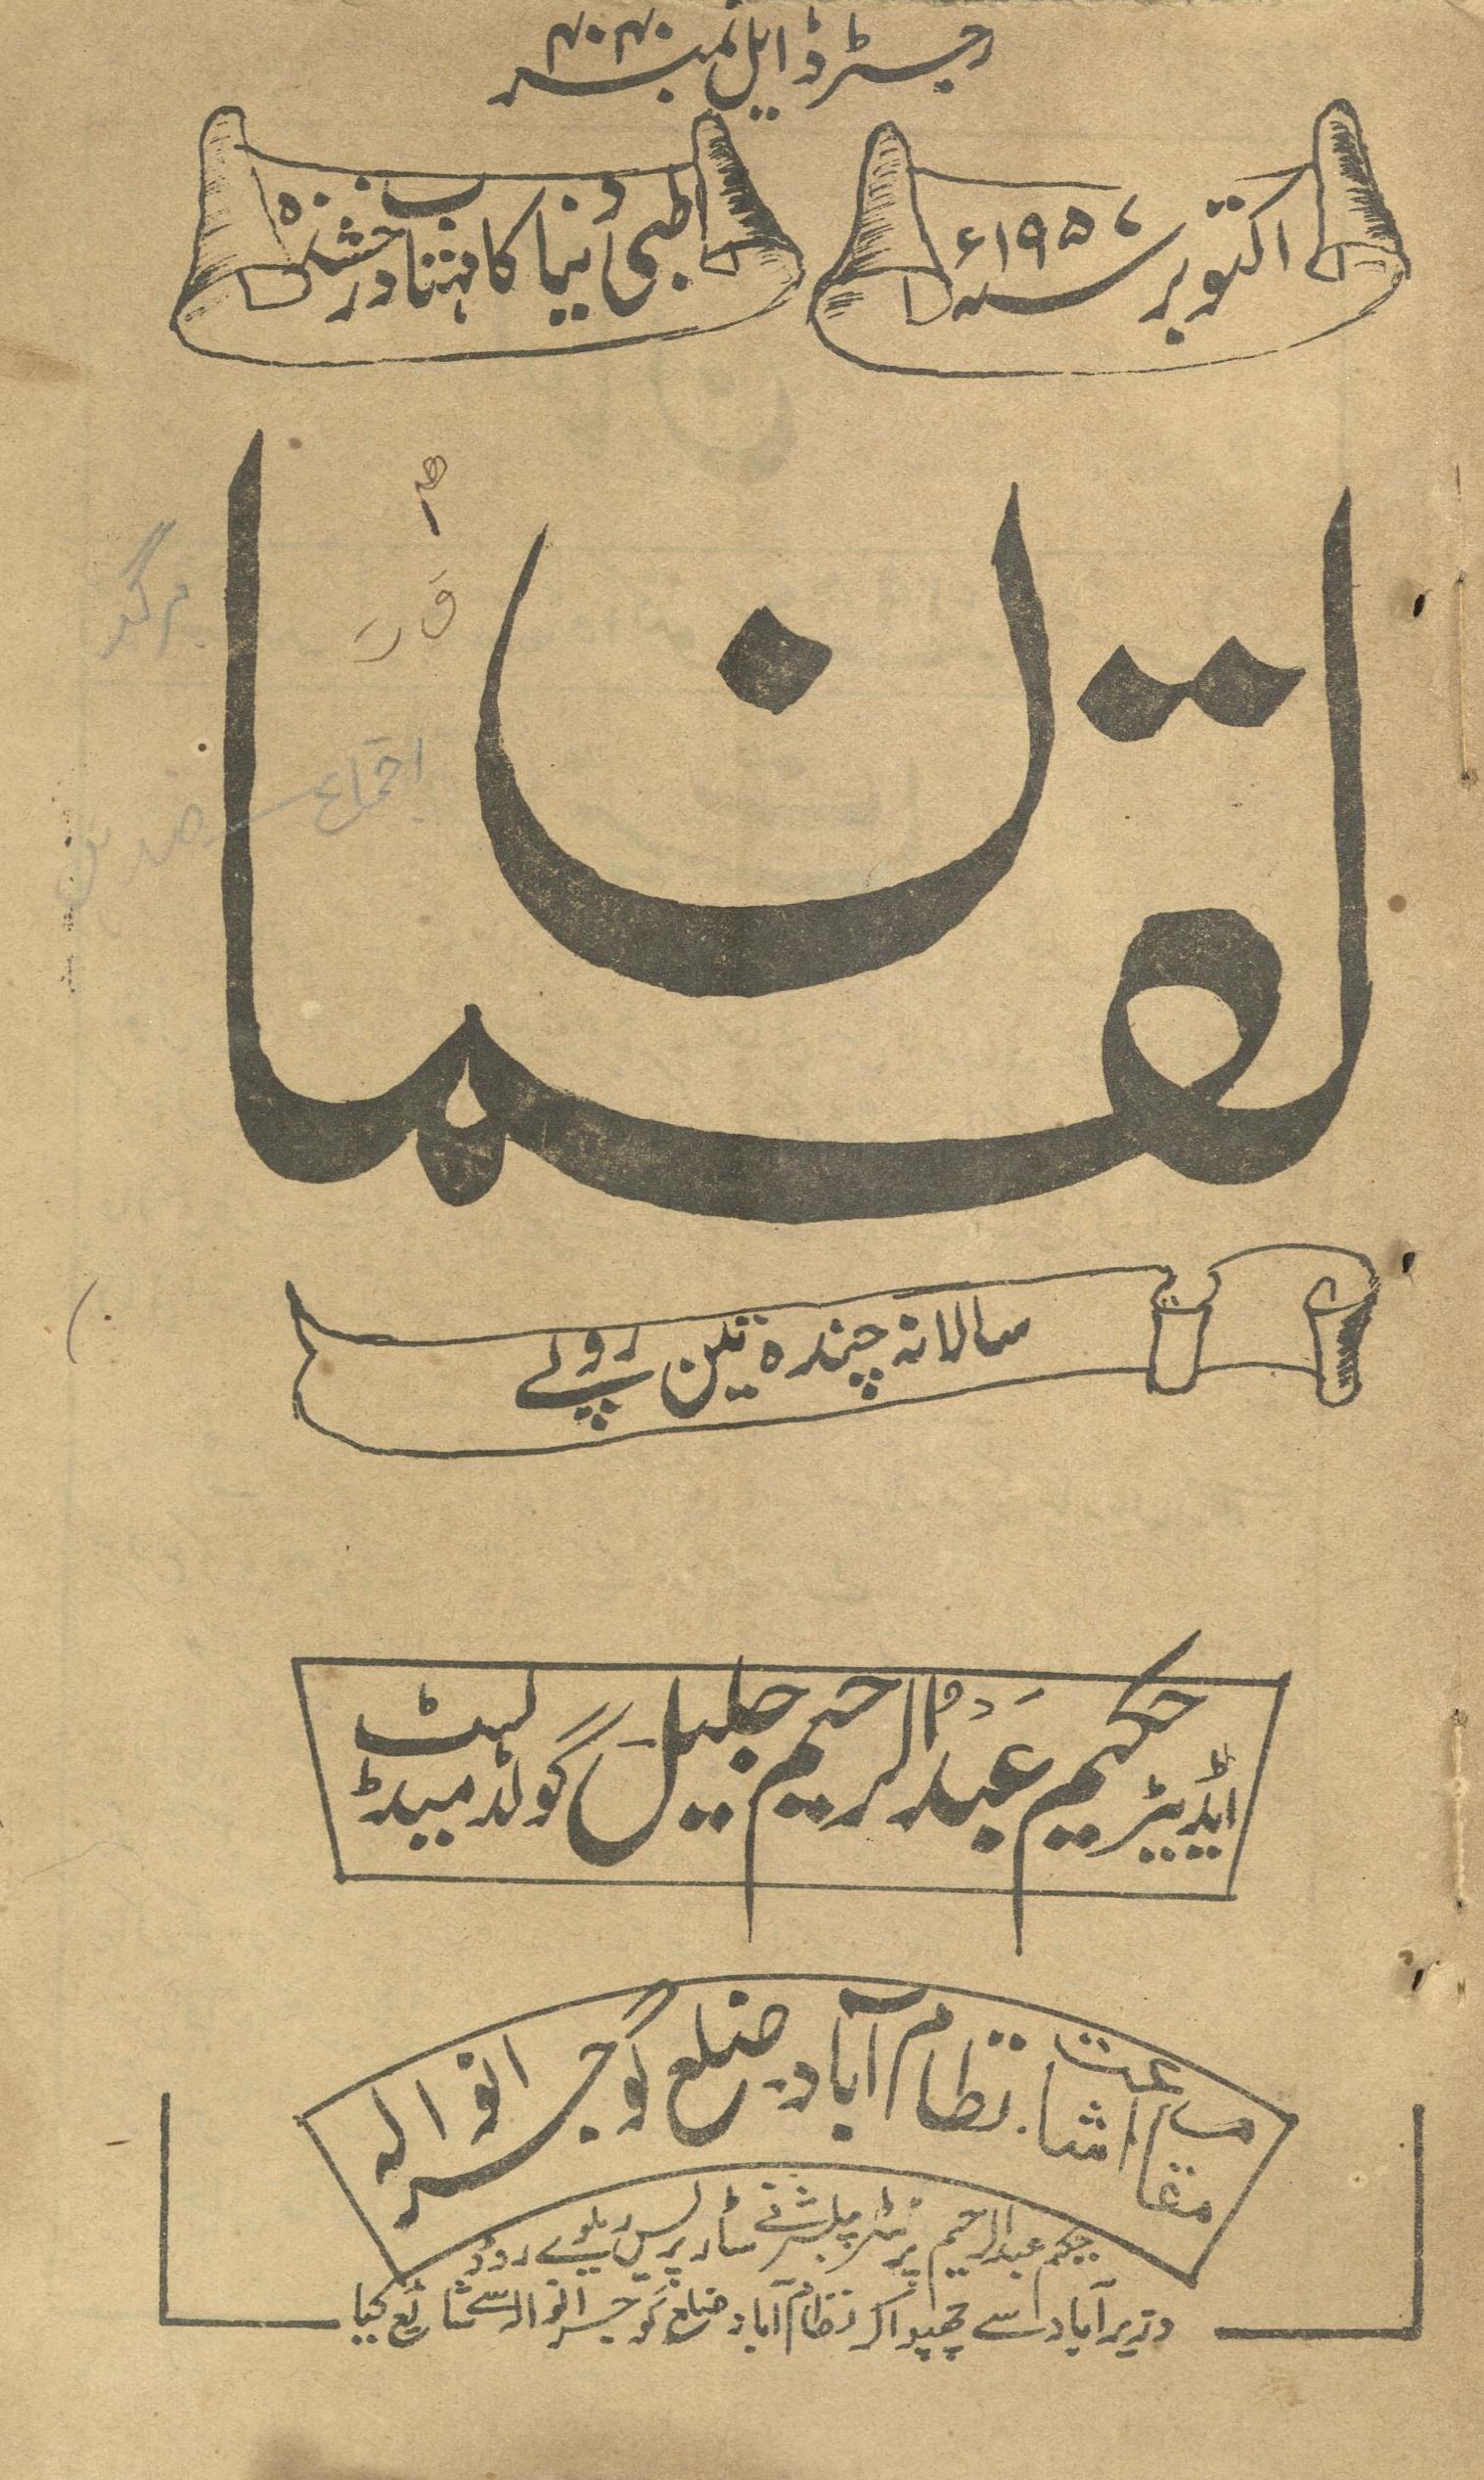 رجسٹرڈ ایل نمبر ۴۰۴۰
اکتوبر سنہ ۱۹۵۷ء
طبی دنیا کا مہتاب درخشندہ
لقمان
سالانہ چندہ تین روپے
ایڈیٹر حکیم عبدالرحیم جلیل گولڈ میڈلسٹ
مقام اشاعت نظام آباد ضلع گوجرانوالہ
حکیم عبدالرحیم پرنٹر پبلشر نے سٹار پریس ریلوے روڈ
وزیر آباد سے چھپوا کر نظام آباد ضلع گوجرانوالہ سے شائع کیا